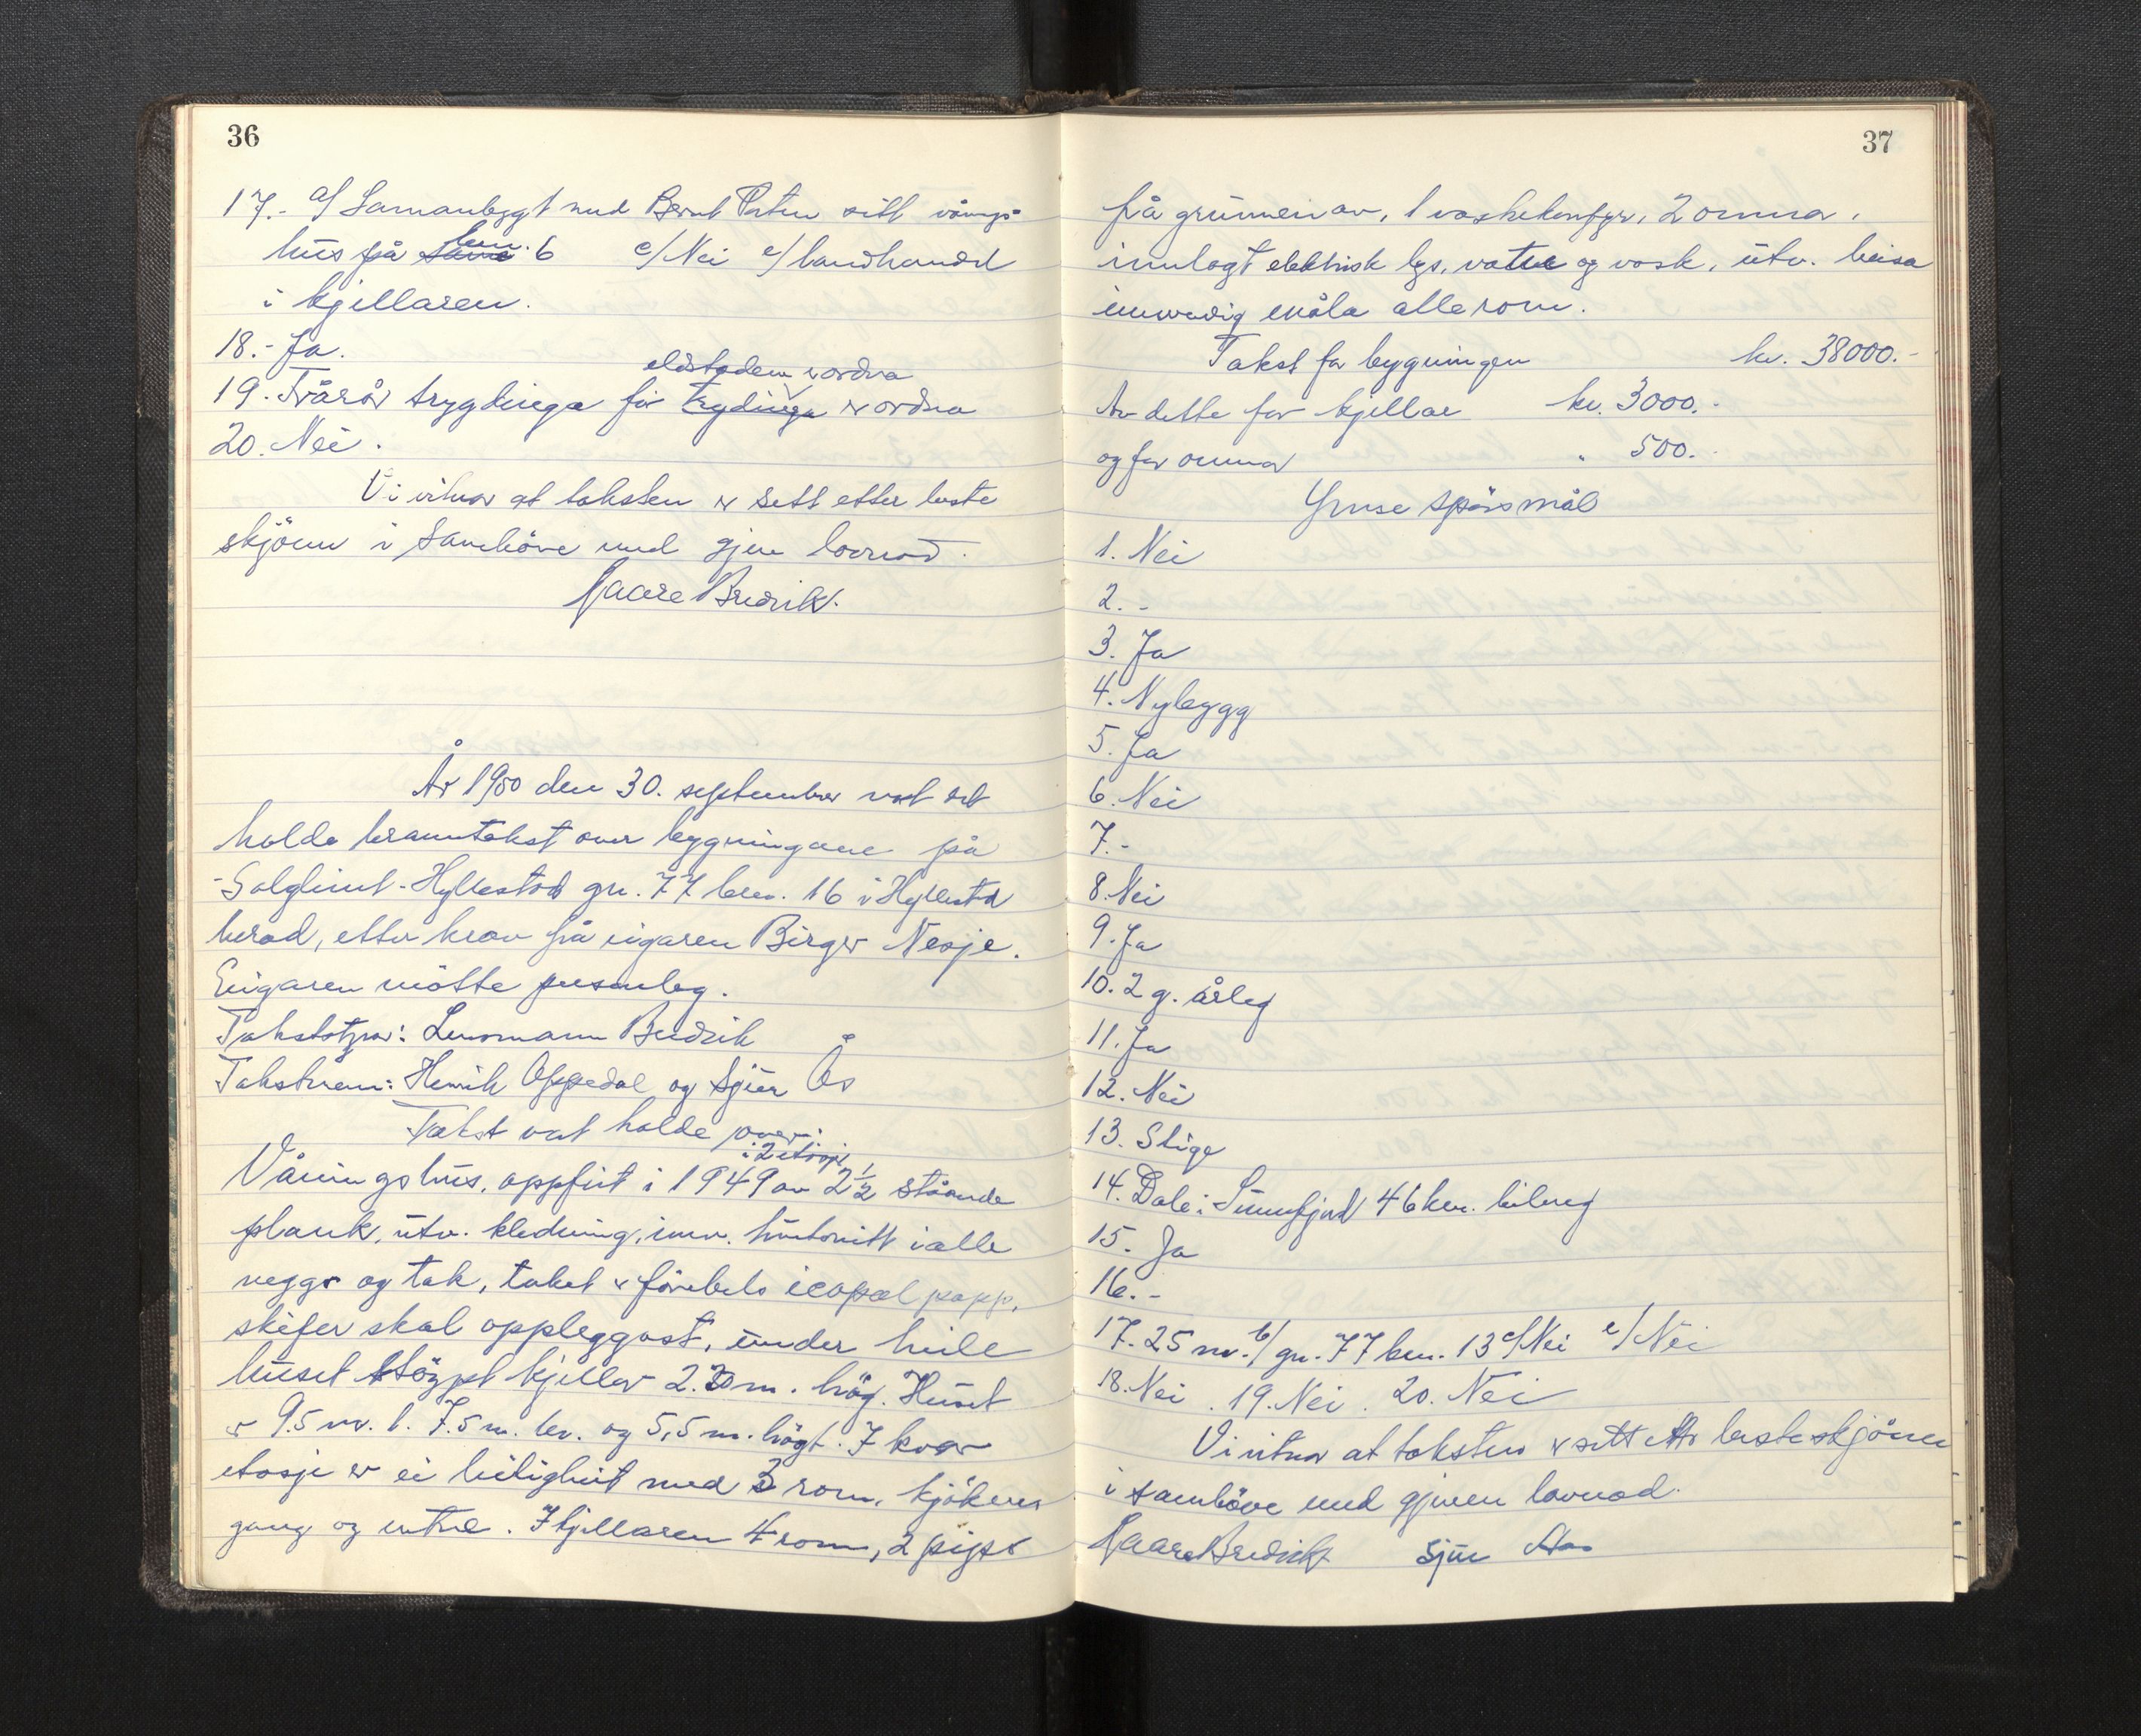 36
17.- a/ Samanbygt med Bernt Porten sitt vånings-
hus på bnr. 6 c/ Nei e/ landhandel
i kjellaren.
18.- Ja.
eldstaden er ordna
19. Fråråd trygdinga før trygdinga er ordna
20. Nei.
Vi vitnar at taksten er sett etter beste
skjönn i samhöve med gjeven lovnad.
Kaare Bredvik.
År 1950 den 30. september vart det
halde branntakst over bygningane på
"Solglimt"-Hyllestad gnr. 77 bnr. 16 i Hyllestad
herad, etter krav frå eigaren Birger Nesje.
Eigaren mötte personleg.
Takststyrar: Lensmann Bredvik
Takstmenn: Henrik Oppedal og Sjur Ås
Takst vart halde over:
i 2 etasjer
Våningshus, oppført i 1949 av 2½ ståande
plank, utv. kledning, innv. huntonitt i alle
vegger og tak, taket er förebels icopal papp,
skifer skal oppleggast, under heile
huset støypt kjellar 2.30 m. høg. Huset
er 9.5 m. l. 7.5 m. br. og 5,5 m. högt. I kvar
etasje er ei leilighet med 3 rom, kjöken
gang og entre. I kjellaren 4 rom, 2 piper
37
frå grunnen av, 1 vaskekomfyr, 2 omnar,
innlagt elektrisk lys, vatn og vask, utv. beisa
innvendig måla alle rom.
Takst for bygningen kr. 38000.-
Av dette for kjellar kr. 3000.-
og for omnar " 500.-
Ymse spörsmål
1. Nei
2. -
3. Ja
4. Nybygg
5. Ja
6. Nei
7. -
8. Nei
9. Ja
10. 2 g. årleg
11. Ja
12. Nei
13. Stige
14. Dale i Sunnfjord 46 km. bilveg
15. Ja
16. -
17. 25 m. b/ gnr. 77 bnr. 13 c/ Nei e/ Nei
18. Nei. 19. Nei. 20. Nei
Vi vitnar at taksten er sett etter beste skjönn
i samhöve med gjeven lovnad.
Kaare Bredvik Sjur Aas